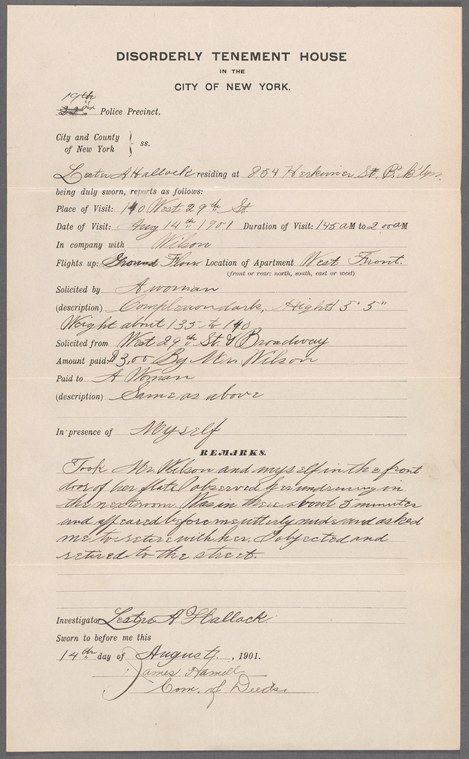 DISORDERLY TENEMENT HOUSE
IN THE
CITY OF NEW YORK.
19th
22nd Police Precinct.
City and County
of New York } ss.
Lester A Hallock residing at 854 Herkimer St. B'klyn.
being duly sworn, reports as follows:
Place of Visit: 140 West 29th St
Date of Visit: Aug 14th 1901 Duration of Visit: 145 AM to 200 AM
In company with Wilson
Flights up: Ground Floor Location of Apartment West Front.
(front or rear: north, south, east or west)
Solicited by A woman
(description) Complexion dark, Hight 5' 5"
Weight about 135 to 140
Solicited from West 29th St & Broadway
Amount paid $3,00 By Mr. Wilson
Paid to A Woman
(description) Same as above
In presence of Myself
REMARKS.
Took Mr Wilson and myself in the front
door of her flat I observed her undressing in
the next room. Was in there about 5 minutes
and appeared before me utterly nude and asked
me to retire with her. I objected and
retired to the street.
Investigator Lester A Hallock.
Sworn to before me this
14th day of August, 1901.
James Hamel
Com. of Deeds